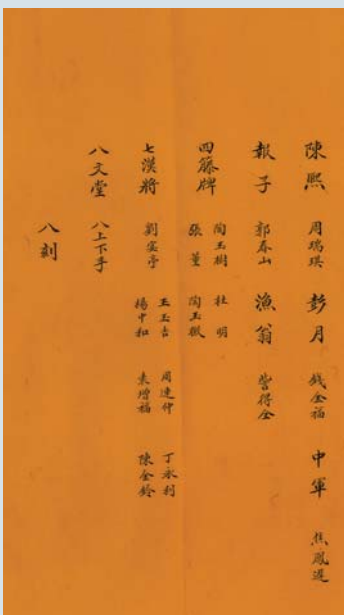 陳熙 周瑞琪 彭月 錢金福 中軍 焦鳳還
報子 郭春山 漁翁 訾得全
四籐牌 陶玉樹 杜明
張葷 陶玉徵
七漢將 劉宝亭 王玉吉 周連仲 丁永利
楊中和 袁增福 陳金鈴
八文堂 八上下手
八刽